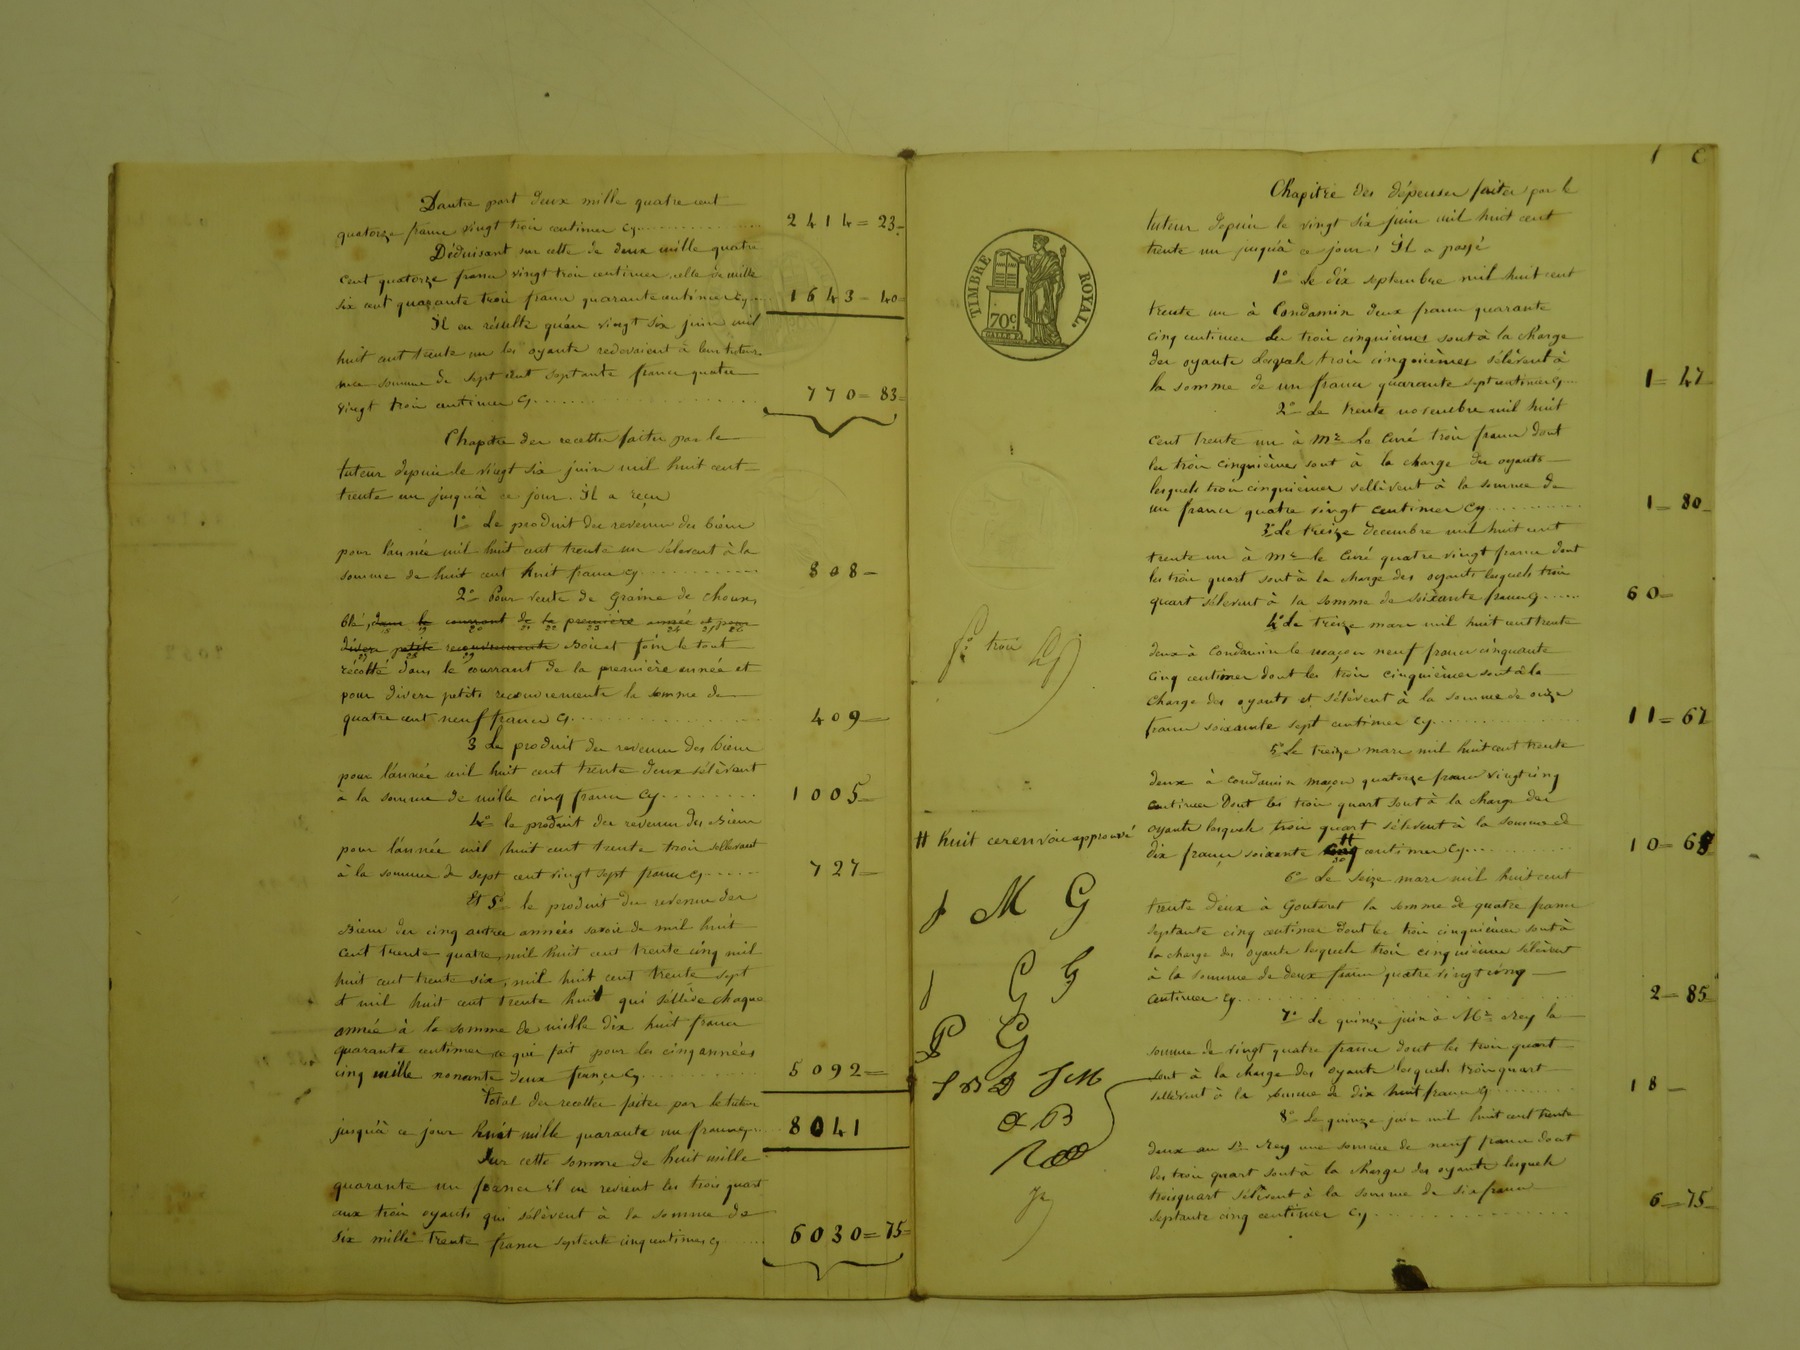 Dautre part deux mille quatre cent
quatorze francs vingt trois centimes cy 2414=23
Déduisant sur cette de deux mille quatre
cent quatorze francs vingt trois centimes, celle de mille
six cent quarante trois francs quarante centimes cy 1643=40
Il en résulte qu'au vingt six juin mil
huit cent trente un les oyants redevaient à leur tuteur
une somme de sept cent septante francs quatre
vingt trois centimes cy 770=83
Chapitre des recettes faites par le
tuteur depuis le vingt six juin mil huit cent
trente un jusqu'à ce jour. Il a reçu
1º Le produit des revenus des biens
pour l'année mil huit cent trente un s'élevent à la
somme de huit cent huit francs cy 808
2º Pour vente de graine de choux,
blé, dans le courrant de la première année et pour
18 19 20 21 22 23 24 25 26
divers petits recouvrements bois et foin le tout
27 28 29
récolté dans le courrant de la première année et
pour divers petits recouvrements la somme de
quatre cent neuf francs cy 409
3 Le produit des revenus des biens
pour l'année mil huit cent trente deux s'élèvant
à la somme de mille cinq francs cy 1005
4º le produit des revenus des Biens
pour l'année mil huit cent trente trois sellevant
à la somme de sept cent vingt sept francs cy 727
Et 5º le produit du revenu des
Biens des cinq autres années savoir de mil huit
cent trente quatre, mil huit cent trente cinq mil
huit cent trente six, mil huit cent trente sept
et mil huit cent trente huit qui s'éllève chaque
année à la somme de mille dix huit francs
quarante centimes ce qui fait pour les cinq années
cinq mille nonante deux francs cy 5092
Total des recettes faites par le tuteur
jusqu'à ce jour huit mille quarante un francs cy 8041
Sur cette somme de huit mille
quarante un francs il en revient les trois quart
aux trois oyants qui s'élèvent à la somme de
six mille trente francs septante cinq centimes cy 6030=75
TIMBRE ROYAL.
70c
fº trois
# huit ce renvoi approuvé
J M G
J G G
P G
J B D J M
a B
Chapitre des dépenses faites par le
tuteur depuis le vingt six juin mil huit cent
trente un jusqu'à ce jour, Il a payé
1º Le dix septembre mil huit cent
trente un à Condamin deux francs quarante
cinq centimes les trois cinquièmes sont à la charge
des oyants lesquels trois cinquièmes s'élèvent à
la somme de un franc quarante sept centimes cy 1=47
2º Le trente novembre mil huit
cent trente un à Mr Le Curé trois francs dont
les trois cinquièmes sont à la charge des oyants
lesquels trois cinquièmes sellèvent à la somme de
un franc quatre vingt centimes cy 1=80
3º Le treize decembre mil huit cent
trente un à Mr le Curé quatre vingt francs dont
les trois quart sont à la charge des oyants lesquels trois
quart s'élevent à la somme de soixante francs cy 60=
4º Le treize mars mil huit cent trente
deux à Condamin le maçon neuf francs cinquante
cinq centimes dont les trois cinquièmes sont à la
charge des oyants et s'élèvent à la somme de onze
francs soixante sept centimes cy 11=67
5º Le treize mars mil huit cent trente
deux à Condamin maçon quatorze francs vingt cinq
centimes Dont les trois quart sont à la charge des
oyants lesquels trois quart s'élèvent à la somme de
dix francs soixante cinq # centimes cy 10=68
30
6º Le seize mars mil huit cent
trente deux à Goutaret la somme de quatre francs
septante cinq centimes dont les trois cinquièmes sont à
la charge des oyants lesquels trois cinquièmes s'élèvent
à la somme de deux francs quatre vingt cinq
centimes cy 2=85
7º Le quinze juin à Mr Rey la
somme de vingt quatre francs dont les trois quart
sont à la charge des oyants lesquels trois quart
sellèvent à la somme de dix huit francs cy 18
8º Le quinze juin mil huit cent trente
deux au Sr Rey une somme de neuf francs dont
les trois quart sont à la charge des oyants lesquels
trois quart s'élèvent à la somme de six francs
septante cinq centimes cy 6=75